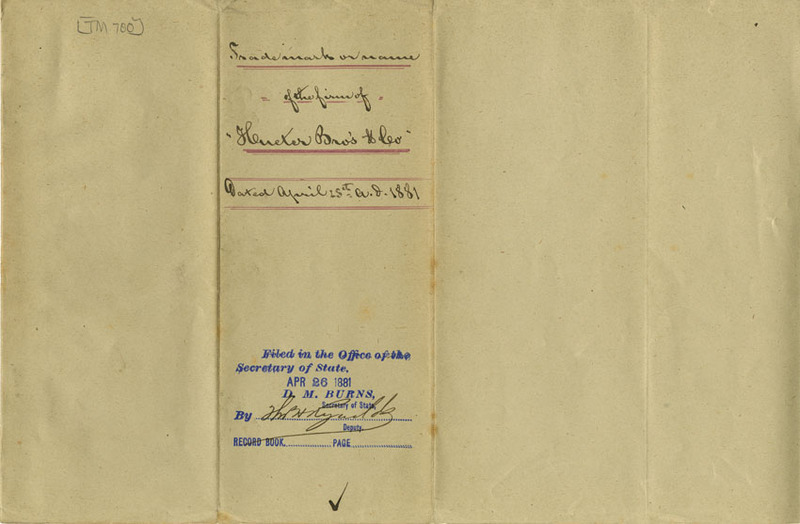 [TM 780]
Trade mark or name
of the firm of
"Hucker Bro's & Co"
Dated April 25th A.D. 1881
Filed in the Office of the
Secretary of State,
APR 26 1881
D. M. BURNS,
Secretary of State,
By
Deputy.
RECORD BOOK PAGE